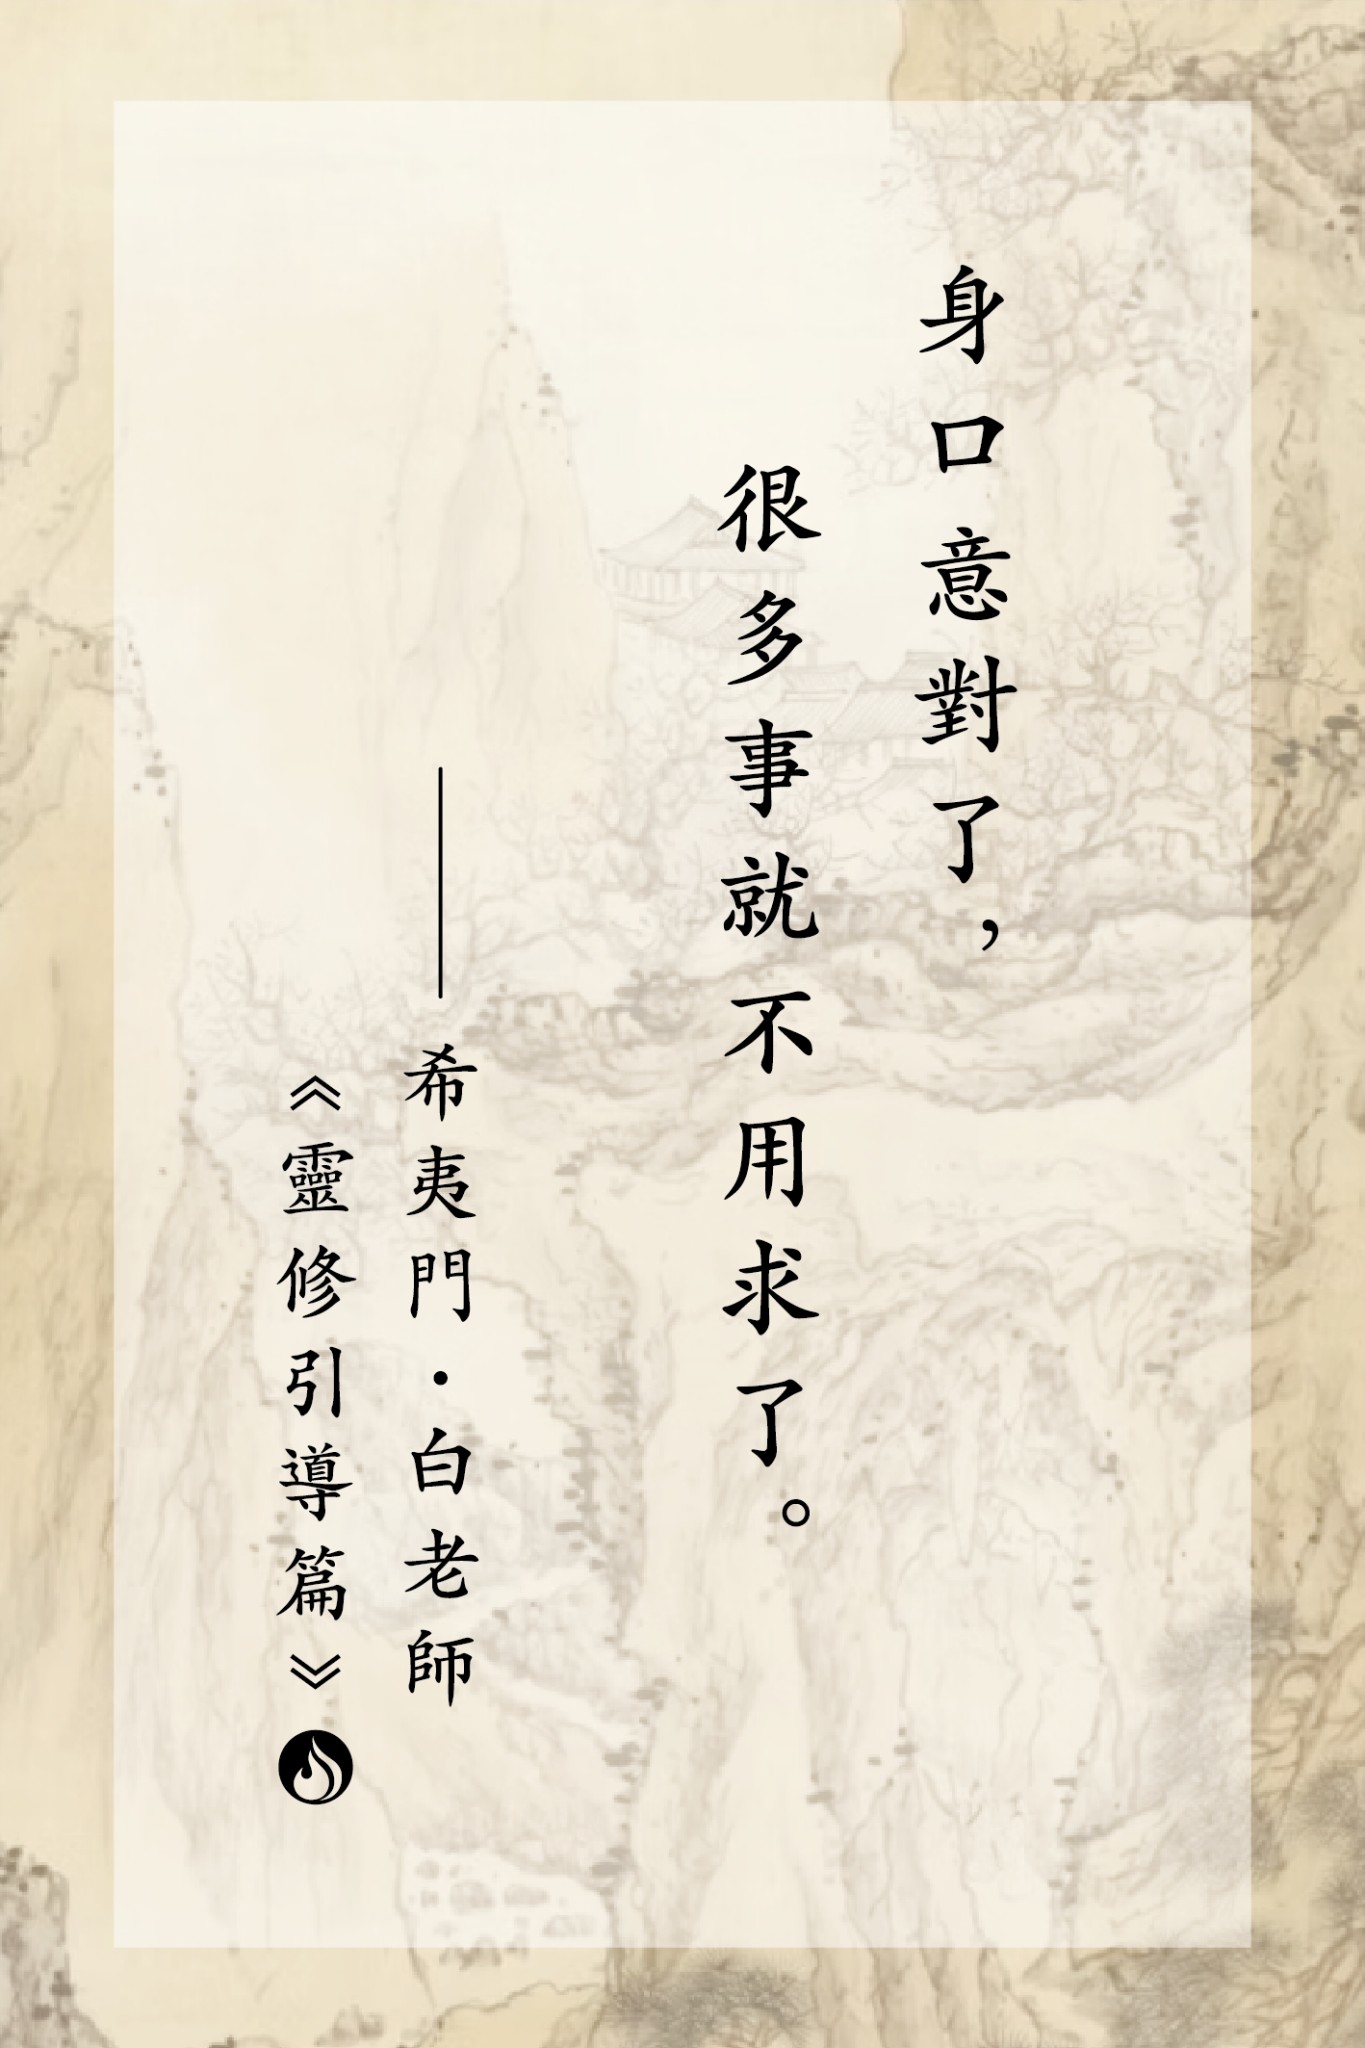 身口意對了，
很多事就不用求了。
——希夷門·白老師
《靈修引導篇》